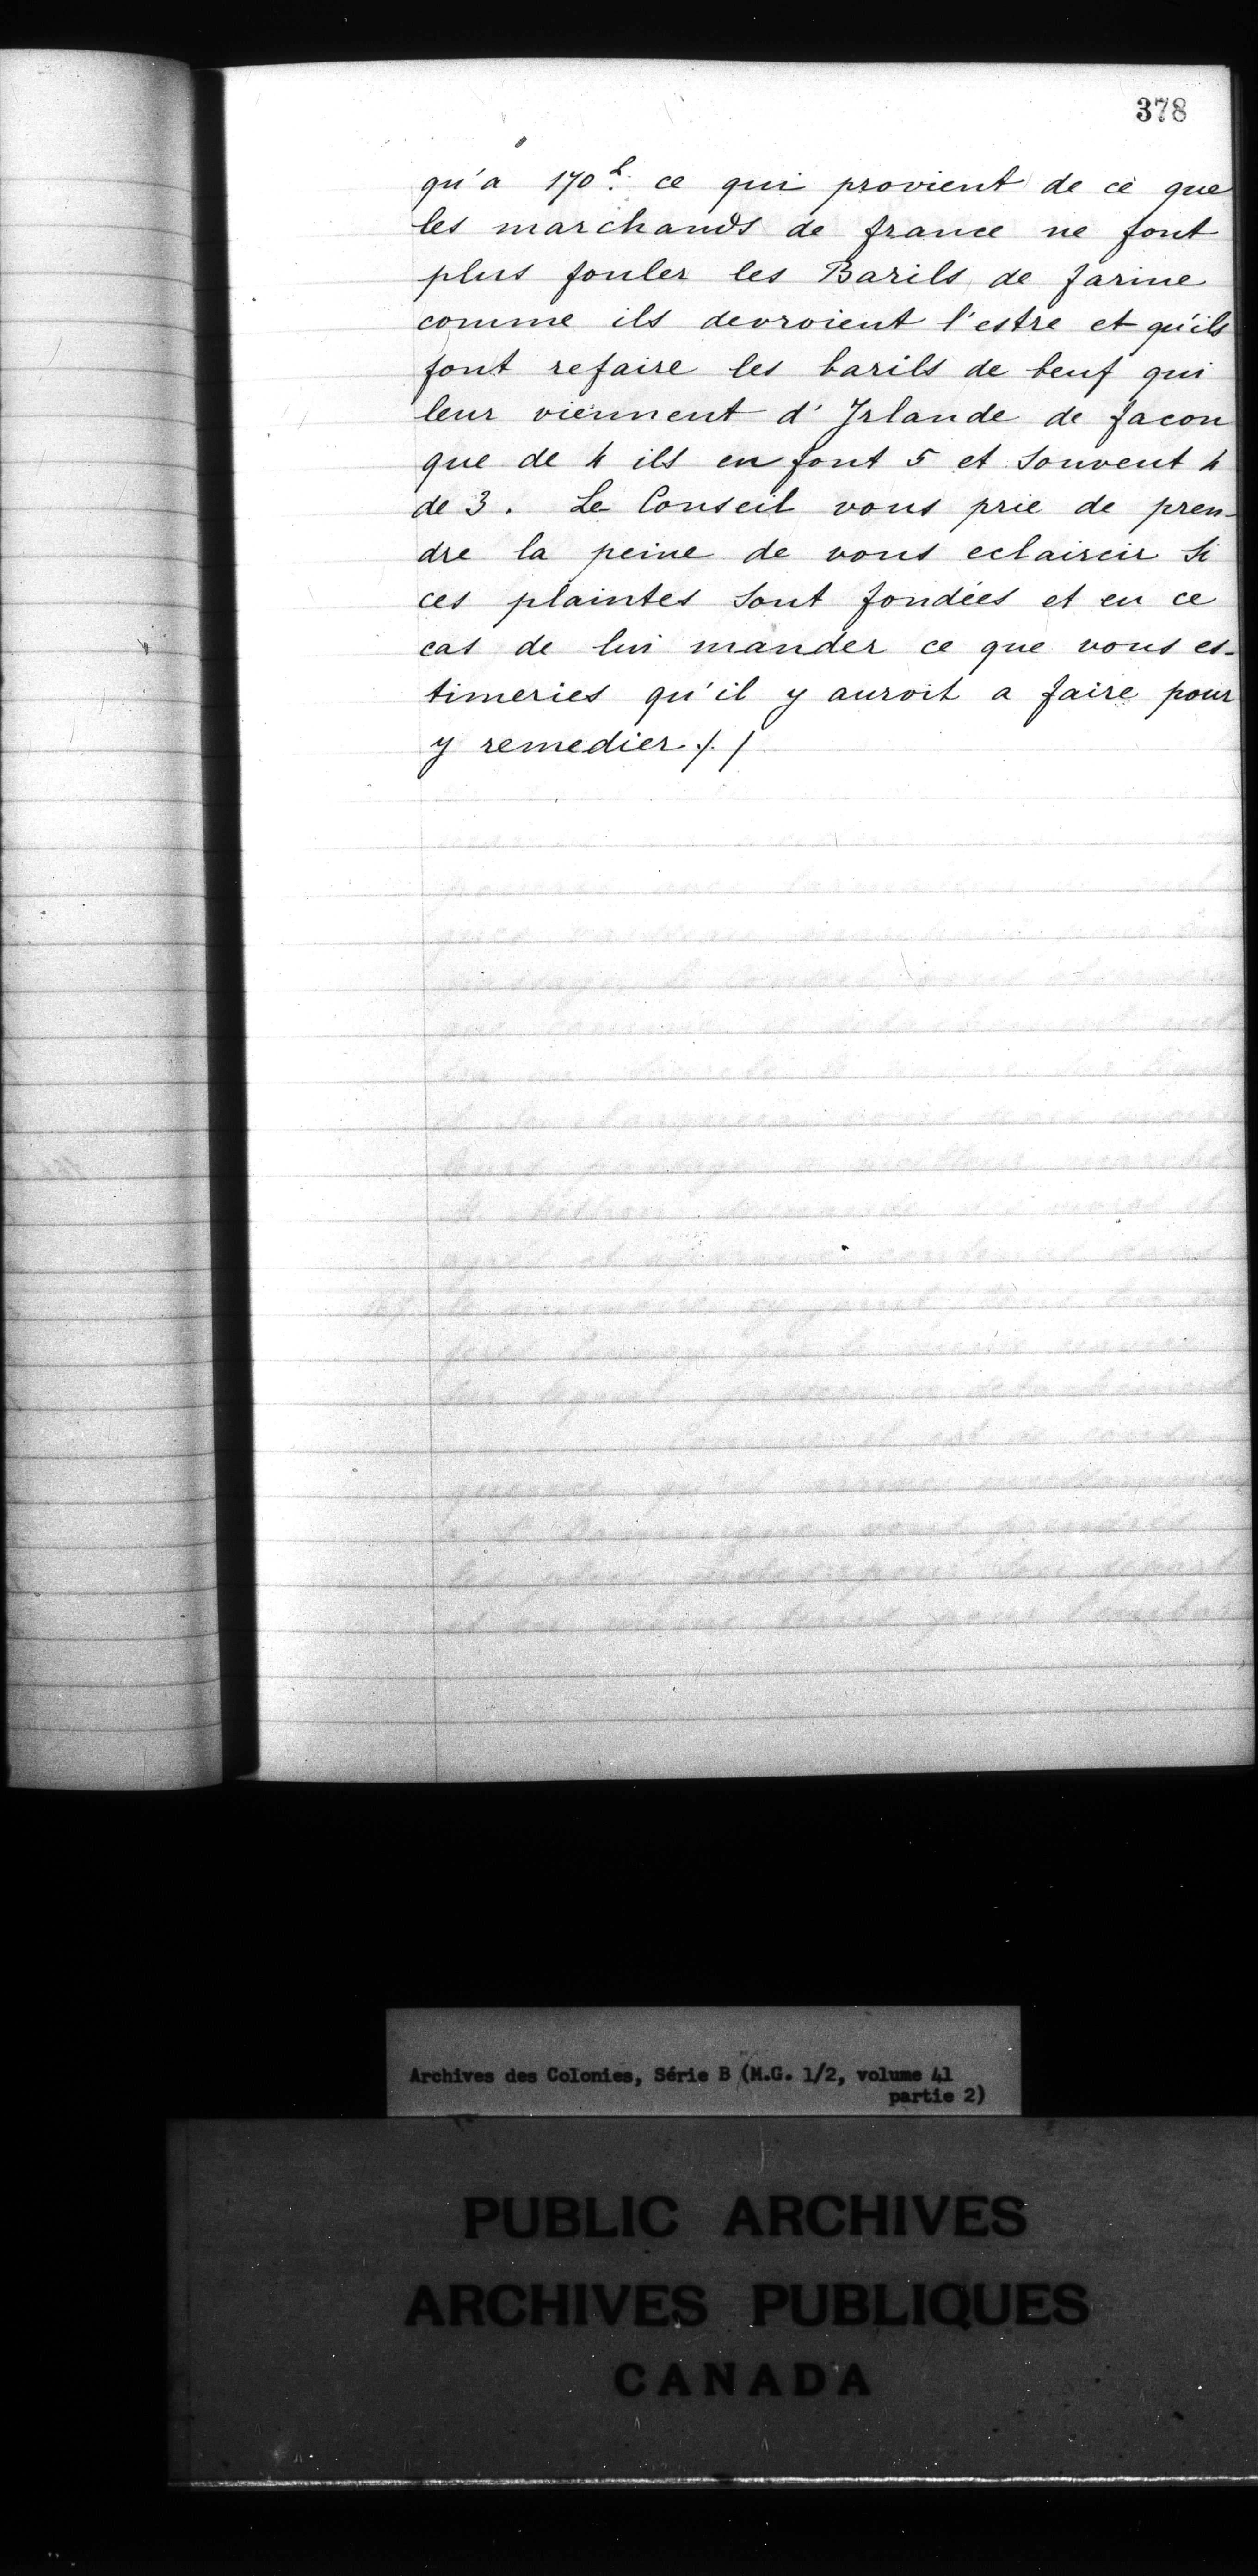 378
qu'a 170 l. ce qui provient de ce que
les marchands de france ne font
plus fouler les Barils de farine
comme ils devroient l'estre et qu'ils
font refaire les barils de beuf qui
leur viennent d'Irlande de facon
que de 4 ils en font 5 et souvent 4
de 3. Le Conseil vous prie de pren-
dre la peine de vous eclaircir si
ces plaintes sont fondées et en ce
cas de lui mander ce que vous es-
timeries qu'il y auroit a faire pour
y remedier ./. /
Archives des Colonies, Série B (M.G. 1/2, volume 41
partie 2)
PUBLIC ARCHIVES
ARCHIVES PUBLIQUES
CANADA